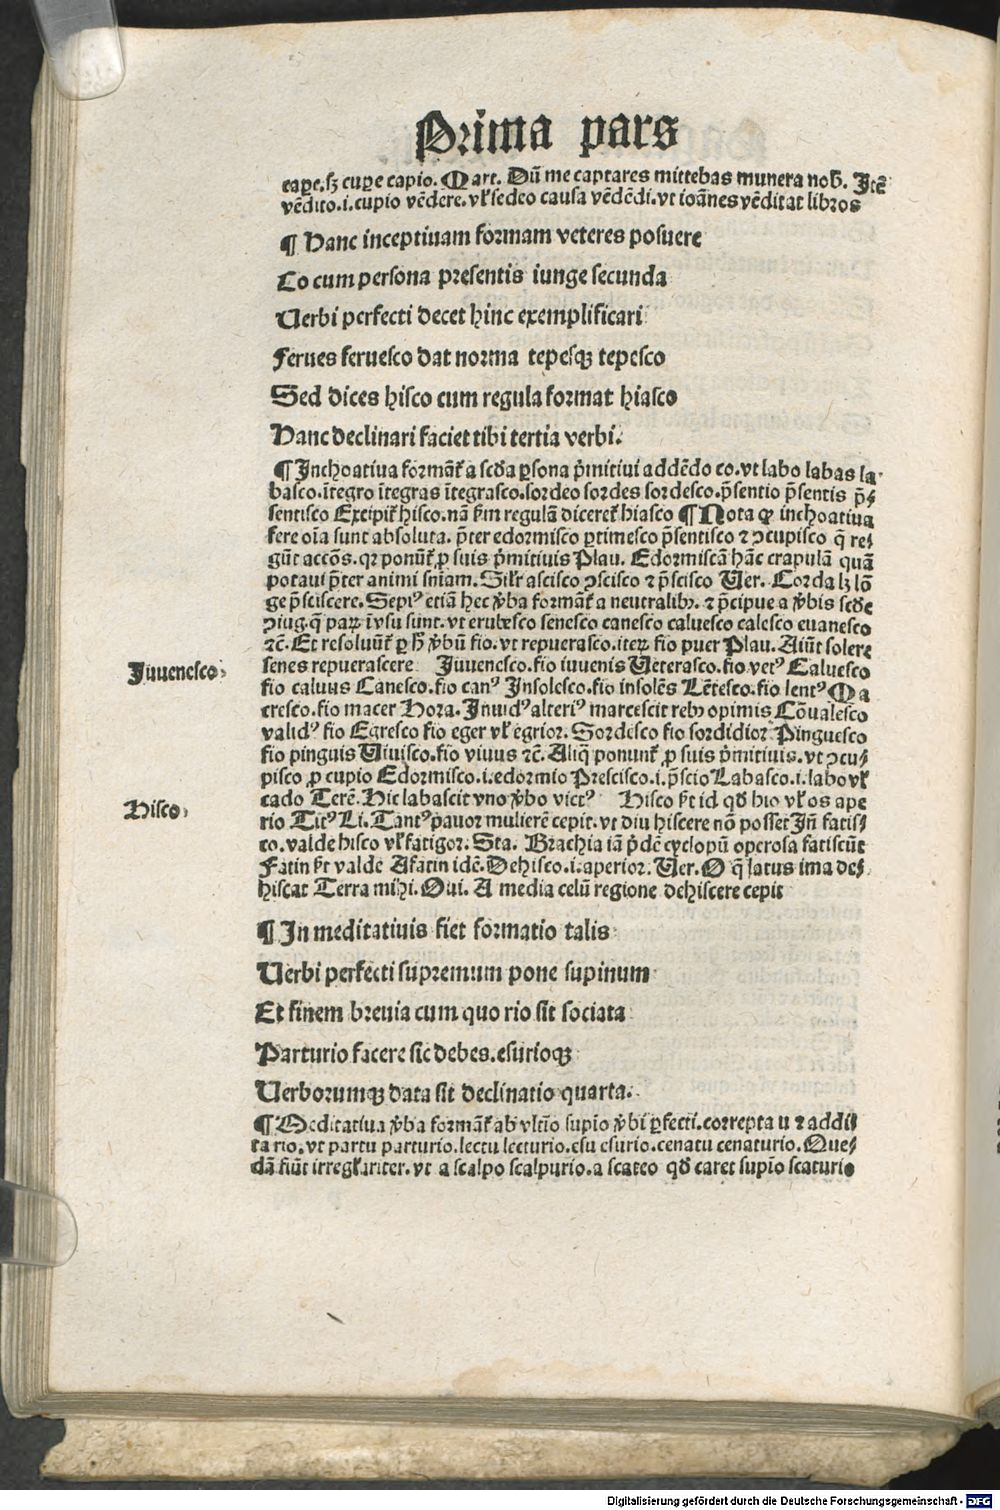 Prima pars
cape.sꝫ cuꝑe capio. Mart. Dū me captares mittebas munera nob̄. Itē
vēdito.i.cupio vēdere. vl̓ sedeo causa vēdēdi.vt ioānes vēditat libros
¶ Hanc inceptiuam formam veteres posuere
Co cum persona presentis iunge secunda
Verbi perfecti decet hinc exemplificari
Ferues feruesco dat norma tepesqꝫ tepesco
Sed dices hisco cum regula format hiasco
Hanc declinari faciet tibi tertia verbi.
¶ Inchoatiua formāt̄ a scd̓a ꝑsona p̄mitiui addēdo co.vt labo labas la⸗
basco.ītegro ītegras ītegrasco.sordeo sordes sordesco.p̄sentio p̄sentis p̄⸗
sentisco Excipit̄ hisco.nā ẜm regulā diceret̄ hiasco ¶ Nota ꝙ inchoatiua
fere oīa sunt absoluta. p̄ter edormisco ꝑtimesco p̄sentisco ⁊ ꝯcupisco q̄ re⸗
gūt accōs. qꝛ ponūt̄ ꝓ suis p̄mitiuis Plau. Edormiscā hāc crapulā quā
potaui p̄ter animi sn̄iam. Sil̓r ascisco ꝯscisco ⁊ p̄scisco Uer. Corda lꝫ lō
ge p̄sciscere. Sepiꝰ etiā hec v̓ba formāt̄ a neutralibꝫ. ⁊ p̄cipue a v̓bis scd̓e
ꝯiug.q̄ paꝝ ī vsu sunt.vt erubesco senesco canesco caluesco calesco euanesco
⁊c̄. Et resoluūt̄ ꝑ h̓ v̓bū fio.vt repuerasco.iteꝝ fio puer Plau. Aiūt solere
Iuuenesco
senes repuerascere Iuuenesco.fio iuuenis Ueterasco.fio vetꝰ Caluesco
fio caluus Canesco.fio canꝰ Insolesco.fio insolēs Lētesco.fio lentꝰ Ma
cresco.fio macer Hora. Inuidꝰ alteriꝰ marcescit rebꝫ opimis Cōualesco
validꝰ fio Egresco fio eger vl̓ egrior. Sordesco fio sordidior Pinguesco
fio pinguis Uiuisco.fio viuus ⁊c̄. Aliq̄ ponunt̄ ꝓ suis p̄mitiuis. vt ꝯcu⸗
pisco ꝓ cupio Edormisco.i.edormio Prescisco.i.p̄scio Labasco.i.labo vl̓
Hisco
cado Terē. Hic labascit vno v̓bo victꝰ Hisco ẜt id qd̓ hio vl̓ os ape
rio Titꝰ Li. Tantꝰ pauor mulierē cepit.vt diu hiscere nō posset Iñ fatis⸗
co.valde hisco vl̓ fatigor. Sta. Brachia iā p̓dē cyclopū operosa fatiscūt
Fatin ẜt valde Afatin idē. Dehisco.i.aperior. Uer. O q̄ latus ima de⸗
hiscat Terra mihi. Oui. A media celū regione dehiscere cepit
¶ In meditatiuis fiet formatio talis
Verbi perfecti supremum pone supinum
Et finem breuia cum quo rio sit sociata
Parturio facere sic debes.esurioqꝫ
Verborumqꝫ data sit declinatio quarta.
¶ Meditatiua v̓ba formāt̄ ab vltīo supīo v̓bi ꝑfecti.correpta u ⁊ addi⸗
ta rio.vt partu parturio.lectu lecturio.esu esurio.cenatu cenaturio. Que⸗
dā fiūt irregl̓ariter. vt a scalpo scalpurio.a scateo qd̓ caret supīo scaturio
Digitalisierung gefördert durch die Deutsche Forschungsgemeinschaft - DFG